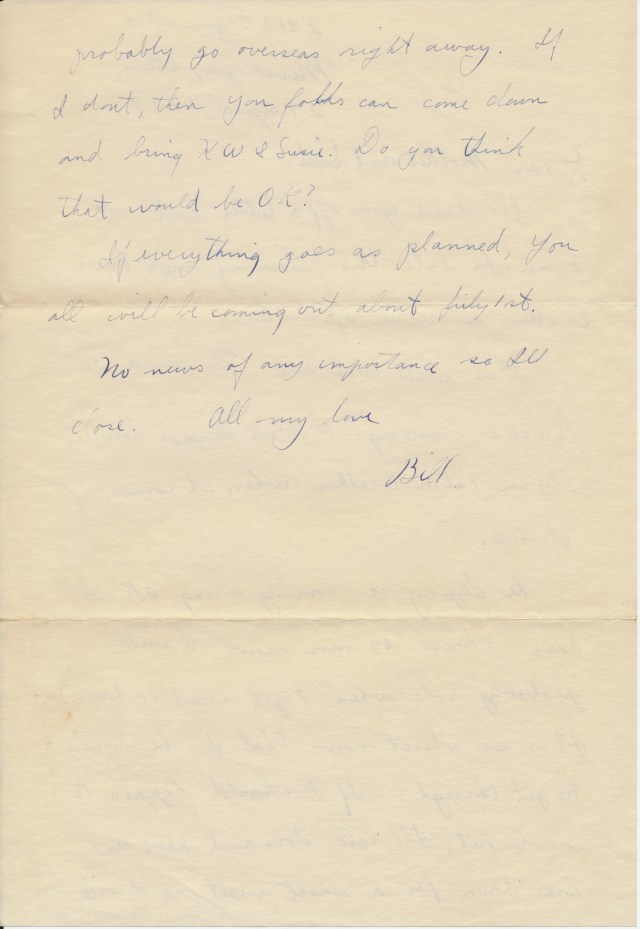 probably go overseas right away. If
I dont, then you folks can come down
and bring K W & Susie. Do you think
that would be O K?
If everything goes as planned, you
all will be coming out about July 1st.
No news of any importance so I'll
close. All my love
Bill.